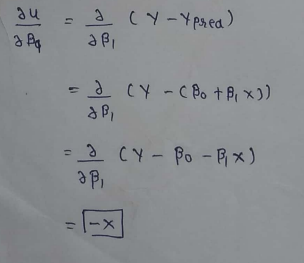 ∂u/∂β₁ = ∂/∂β₁ (Y - Ypred)
= ∂/∂β₁ (Y - (β₀ + β₁x))
= ∂/∂β₁ (Y - β₀ - β₁x)
= -x